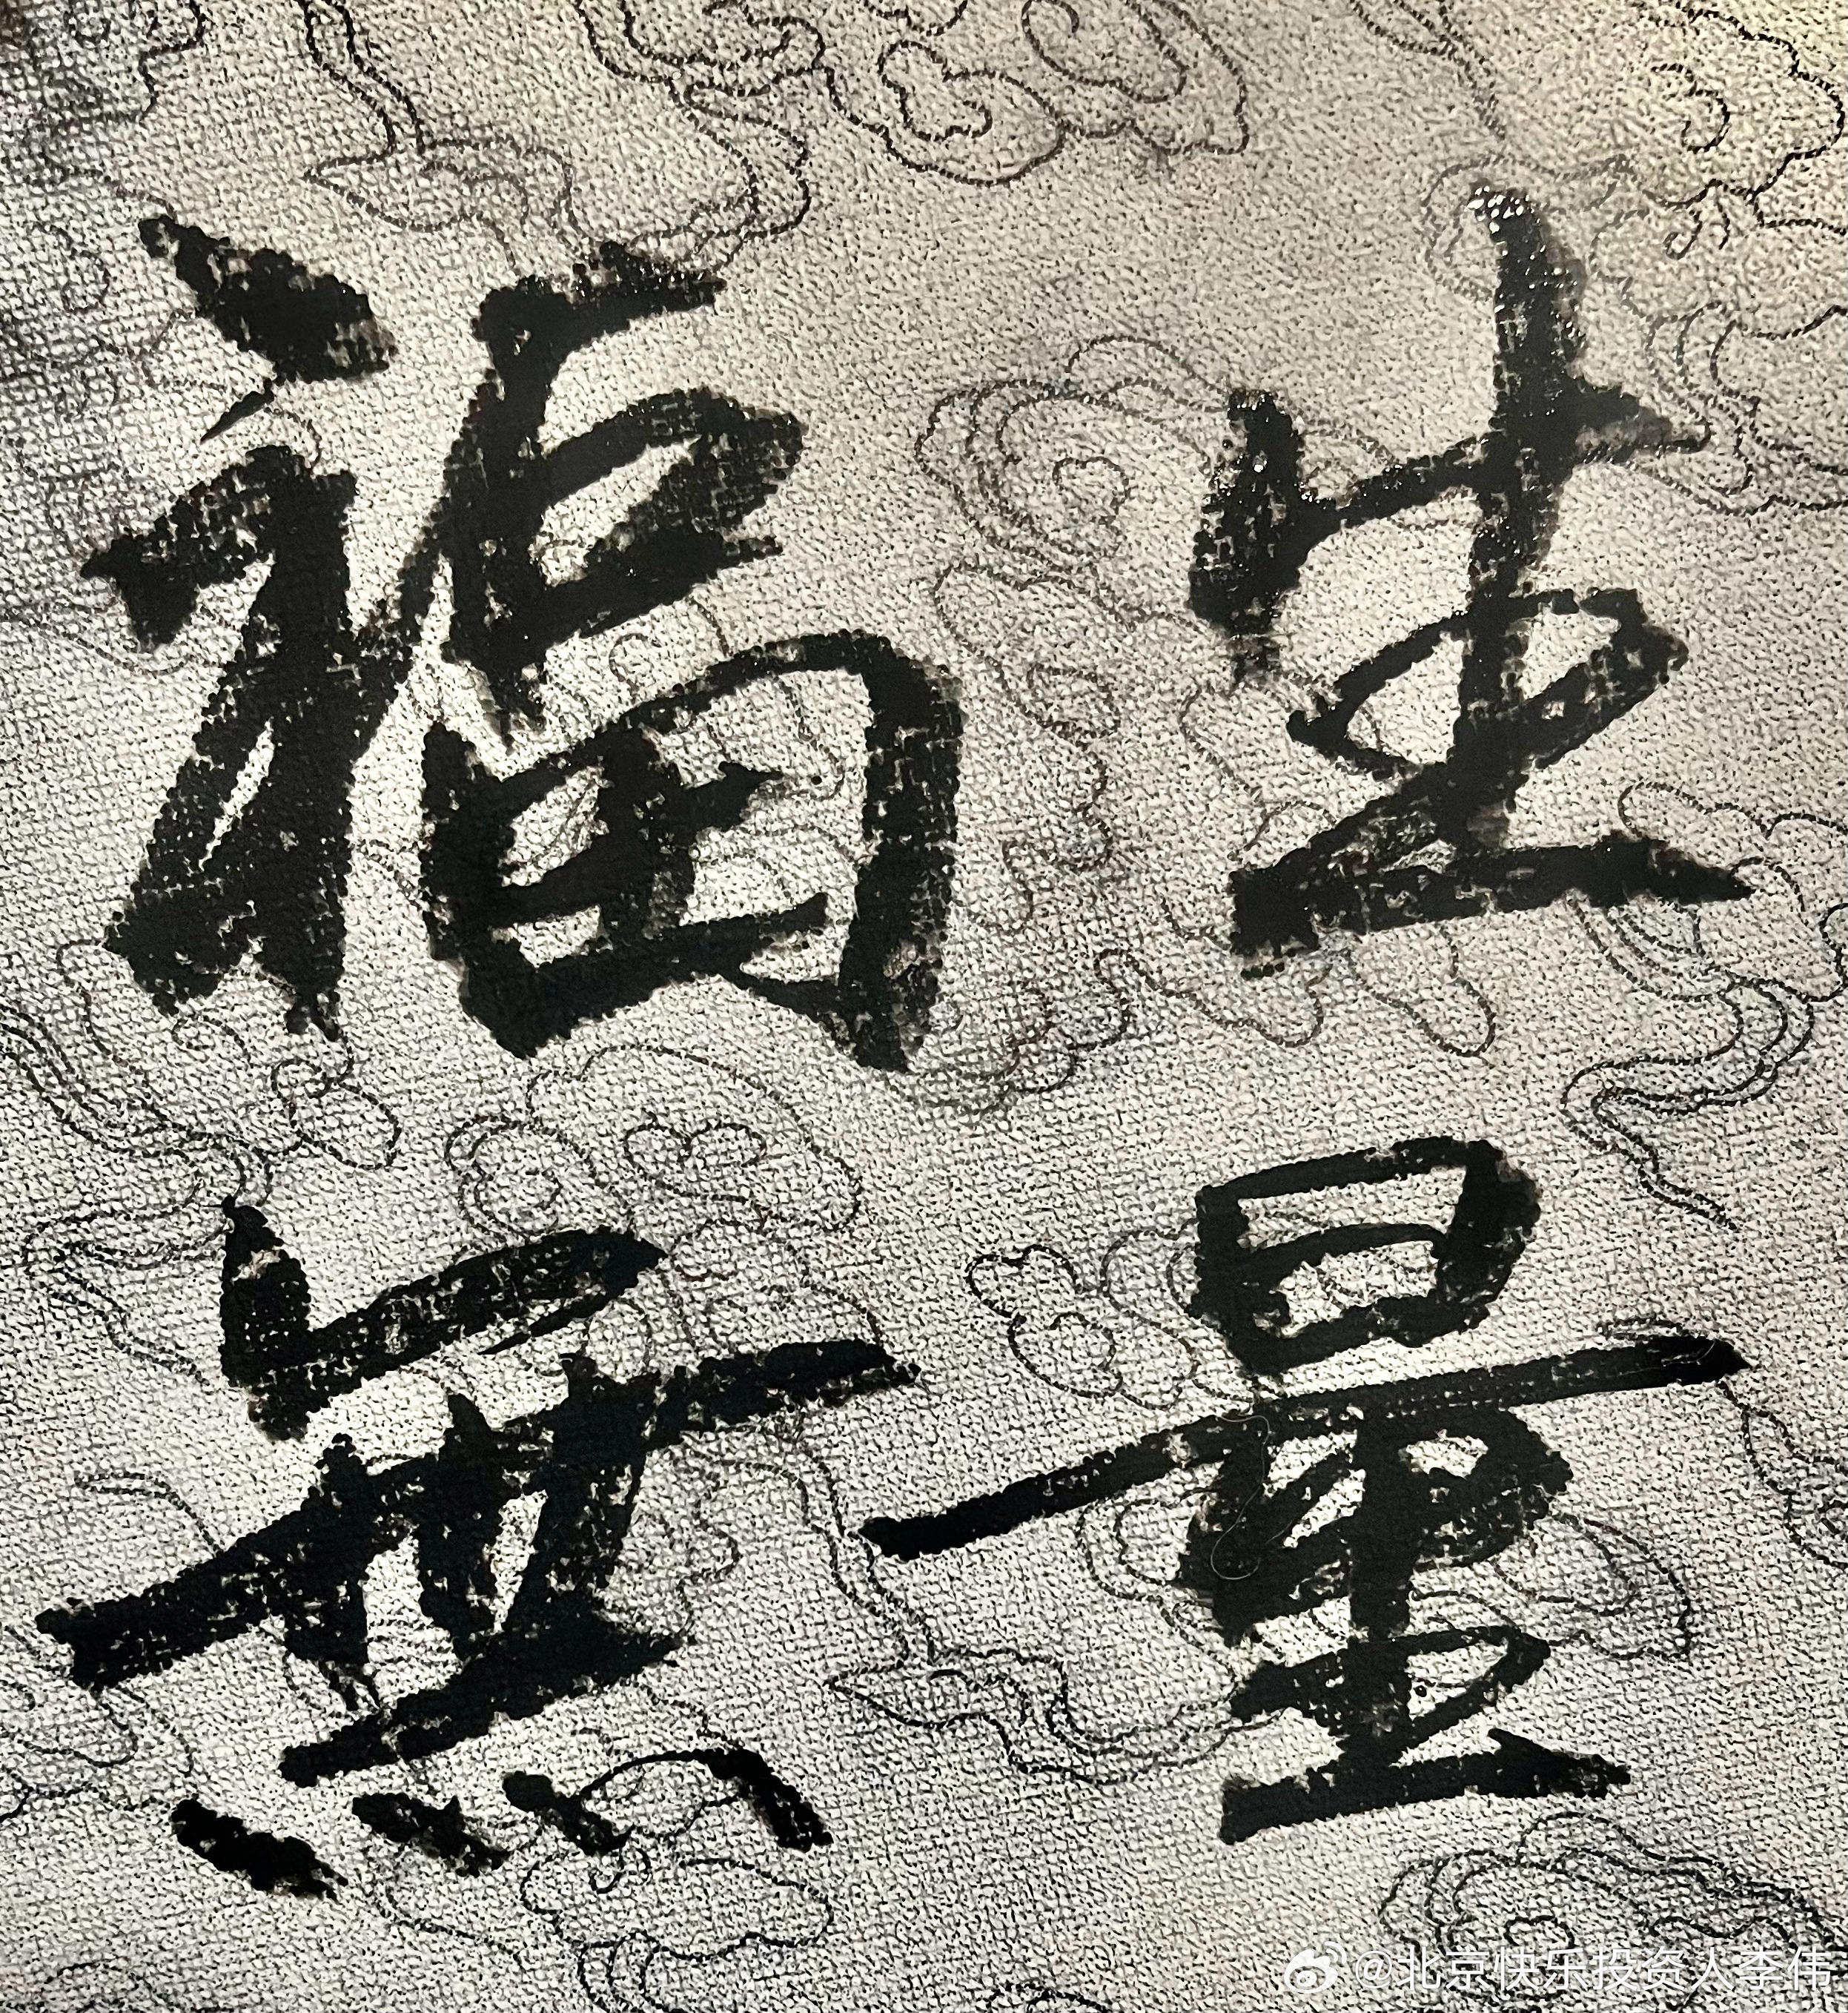 福生
無量
@北京快乐投资人李伟